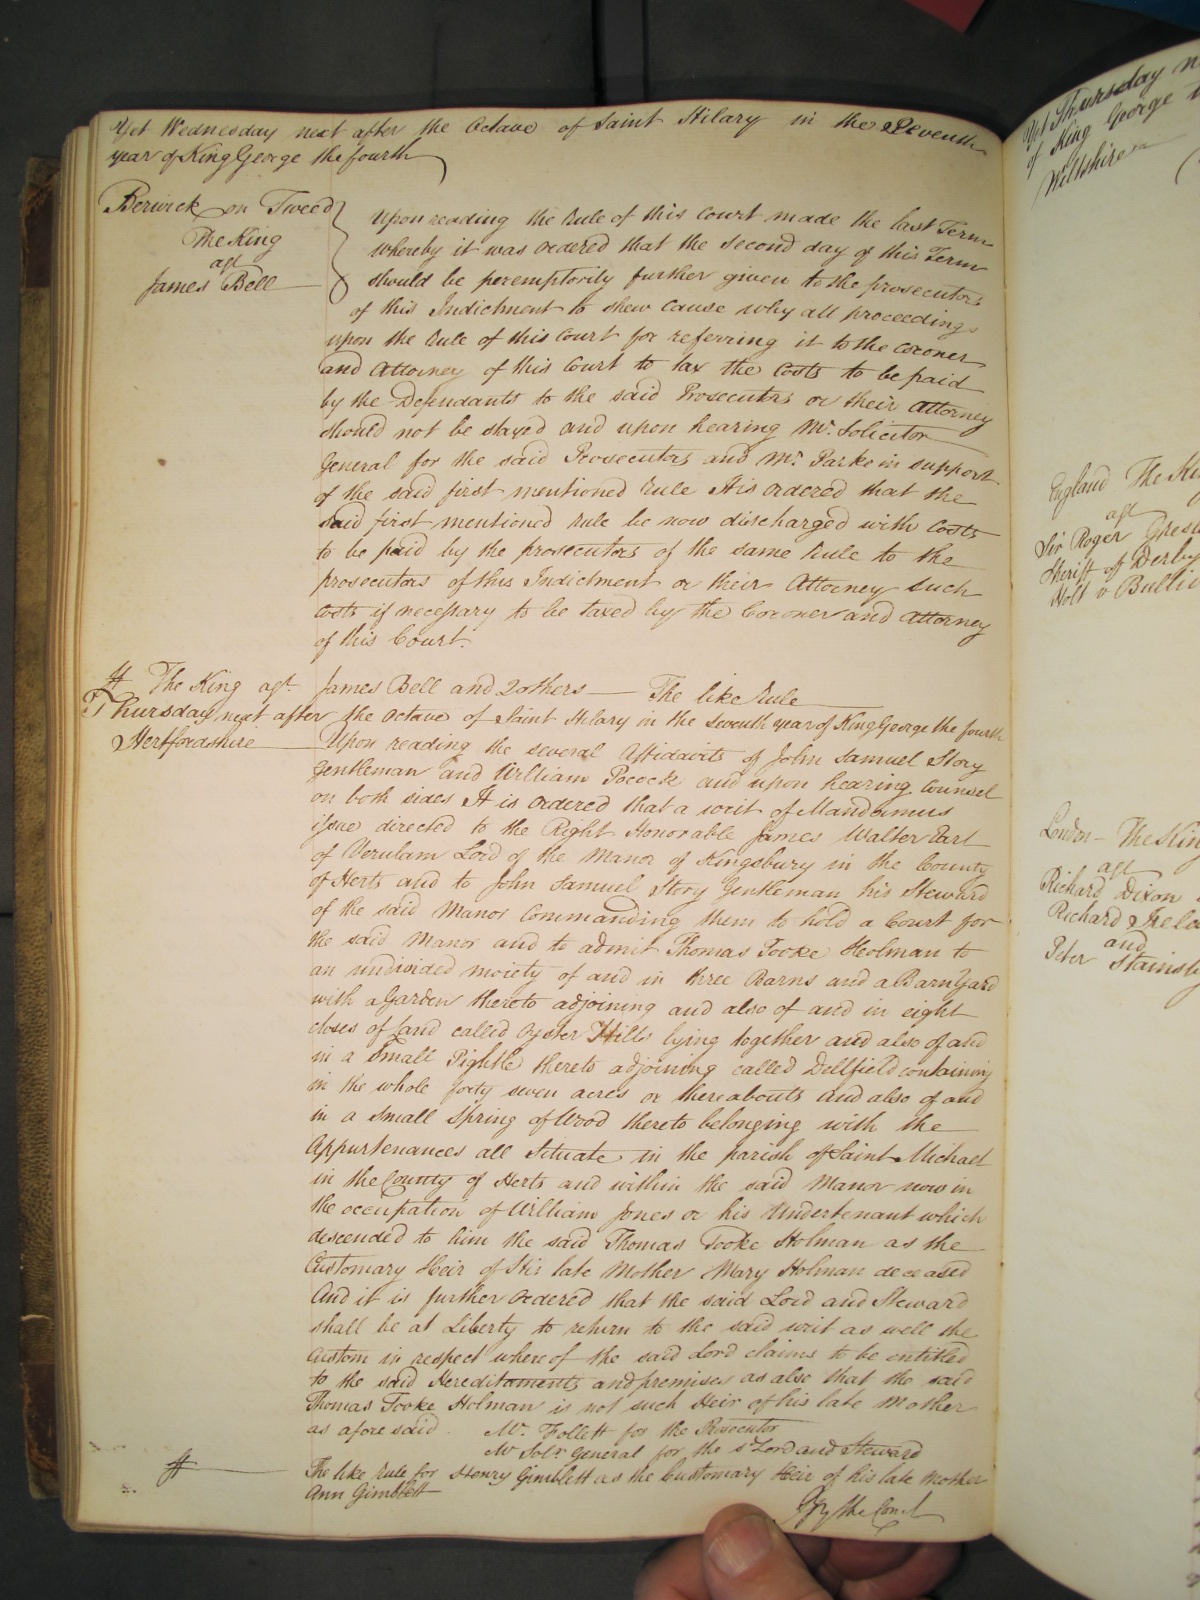 Yet Wednesday next after the Octave of Saint Hilary in the Seventh
year of King George the fourth
Berwick on Tweed
The King
agt
James Bell
Upon reading the Rule of this Court made the last Term
whereby it was ordered that the second day of this Term
should be peremptorily further given to the prosecutors
of this Indictment to shew cause why all proceedings
upon the Rule of this Court for referring it to the Coroner
and Attorney of this Court to tax the Costs to be paid
by the Defendants to the said Prosecutors or their Attorney
should not be stayed and upon hearing Mr. Solicitor
General for the said Prosecutors and Mr. Parke in support
of the said first mentioned Rule It is ordered that the
said first mentioned Rule be now discharged with Costs
to be paid by the prosecutors of the same Rule to the
prosecutors of this Indictment or their Attorney such
Costs if necessary to be taxed by the Coroner and Attorney
of this Court.
The King agt. James Bell and 2 others — The like Rule
Thursday next after the Octave of Saint Hilary in the Seventh year of King George the fourth
Hertfordshire
Upon reading the several Affidavits of John Samuel Story
Gentleman and William Pocock and upon hearing Counsel
on both sides It is Ordered that a writ of Mandamus
issue directed to the Right Honorable James Walter Earl
of Verulam Lord of the Manor of Kingsbury in the County
of Herts and to John Samuel Story Gentleman his Steward
of the said Manor Commanding them to hold a Court for
the said Manor and to admit Thomas Tooke Holman to
an undivided moiety of and in three Barns and a Barn Yard
with a Garden thereto adjoining and also of and in eight
closes of Land called Oyster Hills lying together and also of and
in a Small Pightle thereto adjoining called Dellfield containing
in the whole forty seven acres or thereabouts and also of and
in a small Spring of Wood thereto belonging with the
Appurtenances all Situate in the parish of Saint Michael
in the County of Herts and within the said Manor now in
the occupation of William Jones or his Undertenant which
descended to him the said Thomas Tooke Holman as the
Customary Heir of His late Mother Mary Holman deceased
And it is further ordered that the said Lord and Steward
shall be at Liberty to return to the said writ as well the
Custom in respect whereof the said Lord claims to be entitled
to the said Hereditaments and premises as also that the said
Thomas Tooke Holman is not such Heir of his late Mother
as afore said. Mr. Follett for the Prosecutor
Mr Solr General for the sd Lord and Steward
The like Rule for Henry Gimblett as the Customary Heir of his late Mother
Ann Gimblett
By the Court
Yet Thursday
of King George
Wiltshire
England The
agt
Sir Roger
Sheriff of Derby
Holt v
London – The King
agt
Richard Dixon
Richard
and
Peter